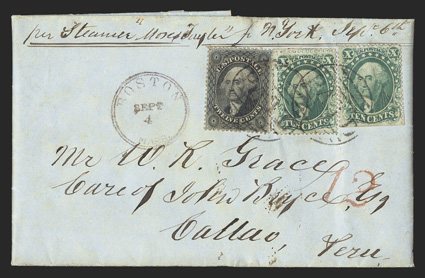 per Steamer "Moses Taylor" fr N. York, Sepr 6th
BOSTON
SEPT
4
U.S. POSTAGE
TWELVE CENTS
X X
TEN CENTS
X X
TEN CENTS
12
Mr W. R. Grace
Care of John Bryce, Esq
Callao,
Peru